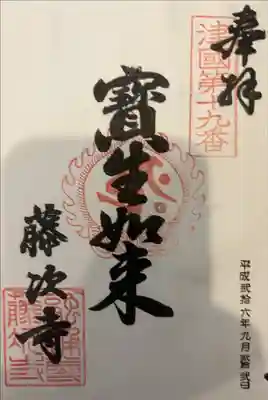 奉拝
津國第十九番
寶生如来
藤次寺
平成弐拾六年九月